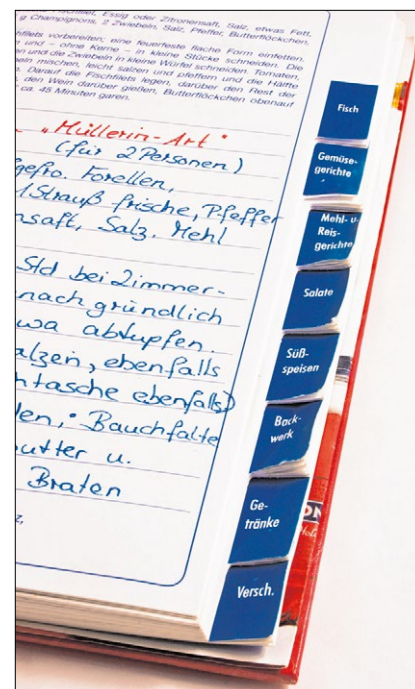 Fischfilet, Essig oder Zitronensaft, Salz, etwas Fett,
g Champignons, 2 Zwiebeln, Salz, Pfeffer, Butterflöckchen,
filets vorbereiten; eine feuerfeste flache Form einfetten.
und - ohne Kerne - in kleine Stücke schneiden. Die
en und die Zwiebeln in kleine Würfel schneiden. Tomaten,
eln mischen, leicht salzen und pfeffern und die Hälfte
Darauf die Fischfilets legen, darüber den Rest der
den Wein darüber gießen, Butterflöckchen obenauf
ca. 45 Minuten garen.
"Müllerin-Art"
(für 2 Personen)
gefro. Forellen,
1 Strauß frische, Pfeffer
nsaft, Salz. Mehl
Std bei Zimmer-
nach gründlich
wa abtupfen.
alzen, ebenfalls
htasche ebenfalls)
len, Bauchfalte
utter u.
Braten
Fisch
Gemüse-
gerichte
Mehl- u.
Reis-
gerichte
Salate
Süß-
speisen
Back-
werk
Ge-
tränke
Versch.